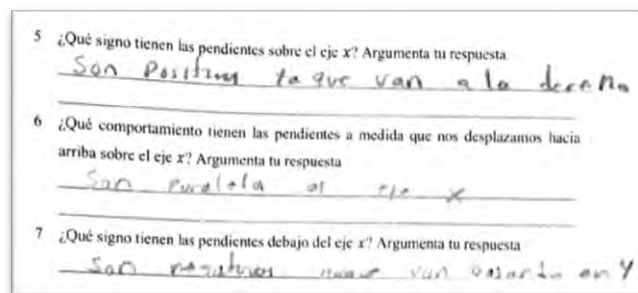 5 ¿Qué signo tienen las pendientes sobre el eje x? Argumenta tu respuesta
Son Positivas ya que van a la derecha
6 ¿Qué comportamiento tienen las pendientes a medida que nos desplazamos hacia
arriba sobre el eje x? Argumenta tu respuesta
San paralela al eje x
7 ¿Qué signo tienen las pendientes debajo del eje x? Argumenta tu respuesta
Son negativas van bajando en Y